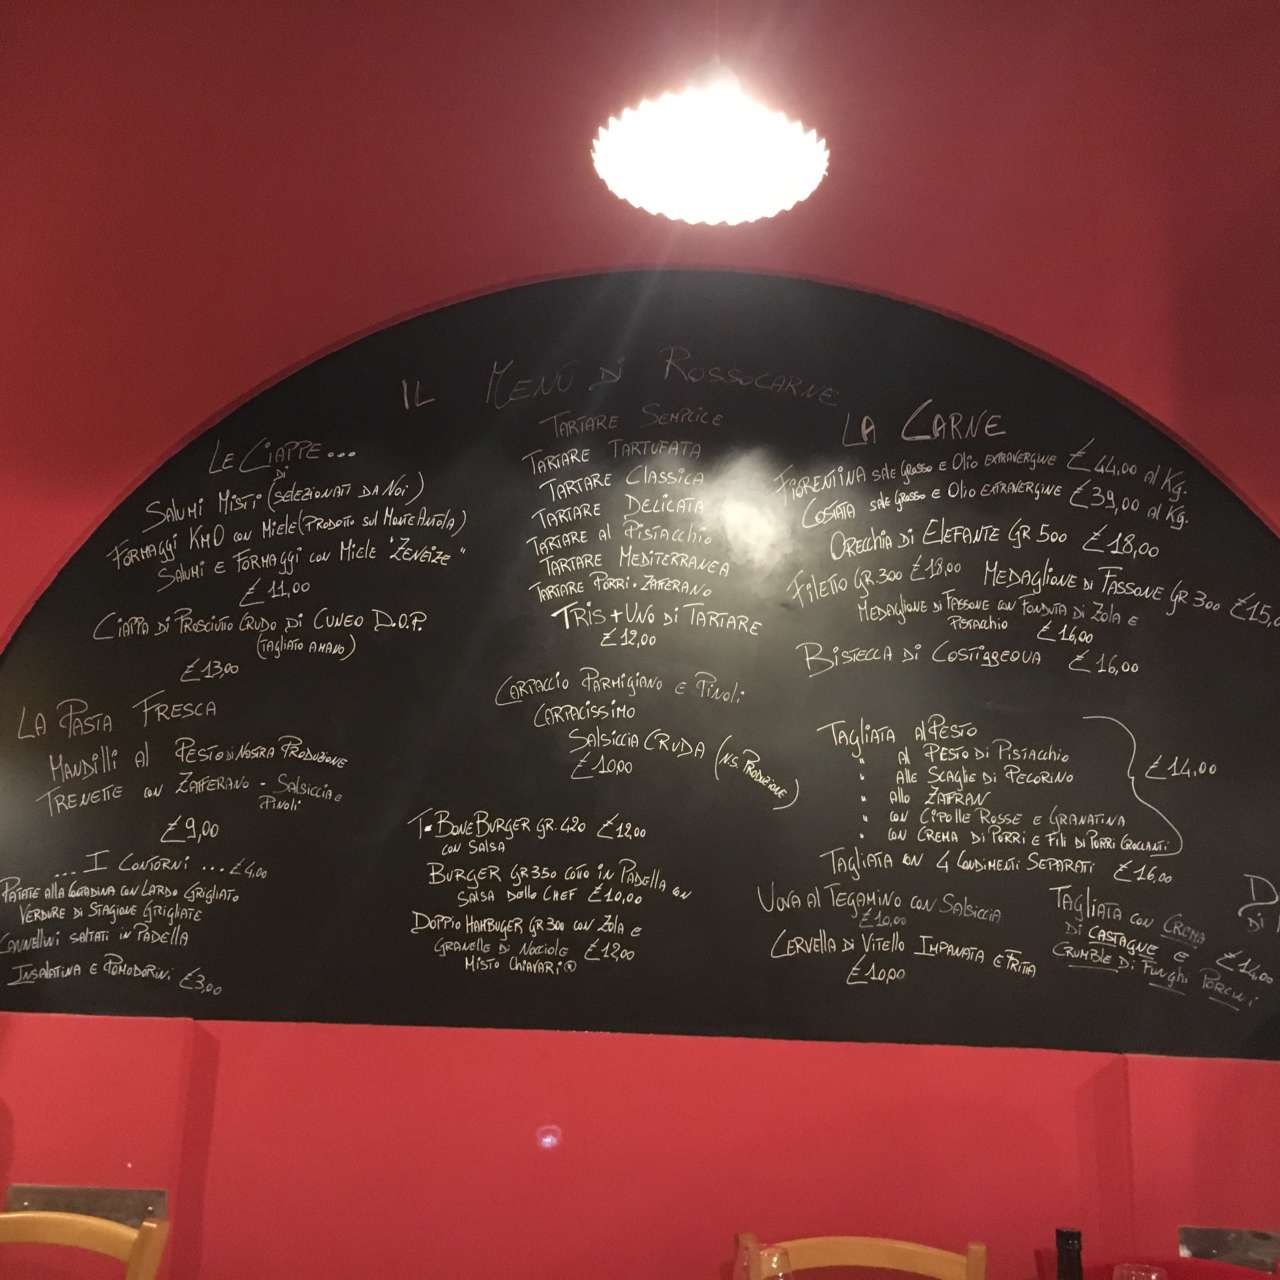 IL MENÙ DI ROSSOCARNE
LE CIAPPE...
DI
SALUMI MISTI (SELEZIONATI DA NOI)
FORMAGGI KM0 CON MIELE (PRODOTTO SUL MONTE ANTOLA)
SALUMI E FORMAGGI CON MIELE "ZENEIZE"
£ 11,00
CIAPPA DI PROSCIUTO CRUDO DI CUNEO D.O.P.
(TAGLIATO A MANO)
£13,00
LA PASTA FRESCA
MANDILLI AL PESTO DI NOSTRA PRODUZIONE
TRENETTE CON ZAFFERANO - SALSICCIA E
PINOLI
£9,00
... I CONTORNI ... £4,00
PATATE ALLA CONTADINA CON LARDO GRIGLIATO
VERDURE DI STAGIONE GRIGLIATE
CANNELLINI SALTATI IN PADELLA
INSALATINA E POMODORINI £3,00
TARTARE SEMPLICE
TARTARE TARTUFATA
TARTARE CLASSICA
TARTARE DELICATA
TARTARE AL PISTACCHIO
TARTARE MEDITERRANEA
TARTARE PORRI - ZAFFERANO
TRIS + UNO DI TARTARE
£12,00
CARPACCIO PARMIGIANO E PINOLI
CARPACISSIMO
SALSICCIA CRUDA (NS. PRODUZIONE)
£10,00
T-BONE BURGER GR. 420 £12,00
CON SALSA
BURGER GR 350 COTTO IN PADELLA CON
SALSA DELLO CHEF £10,00
DOPPIO HAMBUGER GR 300 CON ZOLA E
GRANELLE DI NOCCIOLE £12,00
MISTO CHIAVARI ®
LA CARNE
FIORENTINA SALE GROSSO E OLIO EXTRAVERGINE £44,00 AL KG.
COSTATA SALE GROSSO E OLIO EXTRAVERGINE £39,00 AL KG.
ORECCHIA DI ELEFANTE GR 500 £18,00
FILETTO GR.300 £18,00 MEDAGLIONE DI FASSONE GR 300 £15,0
MEDAGLIONE DI FASSONE CON FONDUTA DI ZOLA E
PISTACCHIO £16,00
BISTECCA DI COSTIGGEOUA £16,00
TAGLIATA AL PESTO
" AL PESTO DI PISTACCHIO
" ALLE SCAGLIE DI PECORINO
" ALLO ZAFFRAN
" CON CIPOLLE ROSSE E GRANATINA
" CON CREMA DI PORRI E FILI DI PORRI CROCCANTI
£14,00
TAGLIATA CON 4 CONDIMENTI SEPARATI £16,00
UOVA AL TEGAMINO CON SALSICCIA
£10,00
CERVELLA DI VITELLO IMPANATA E FRITTA
£10,00
TAGLIATA CON CREMA
DI CASTAGNE E
CRUMBLE DI FUNGHI PORCINI
£14,00
D
DI